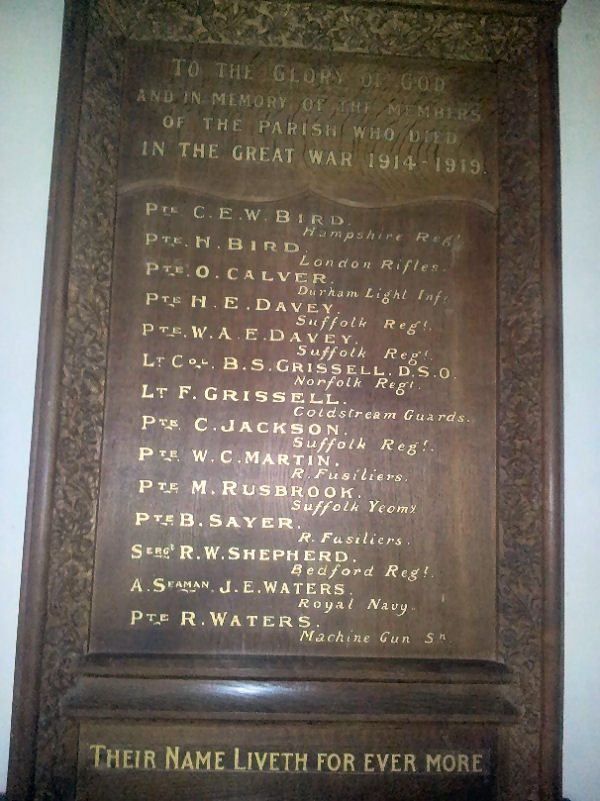 TO THE GLORY OF GOD
AND IN MEMORY OF THE MEMBERS
OF THE PARISH WHO DIED
IN THE GREAT WAR 1914-1919.
PTE C.E.W.BIRD.
Hampshire Regt.
PTE. H. BIRD.
London Rifles.
PTE. O. CALVER.
Durham Light Inf.
PTE H. E. DAVEY.
Suffolk Regt.
PTE. W. A. E. DAVEY.
Suffolk Regt.
LT COL. B.S. GRISSELL. D.S.O.
Norfolk Regt.
LT F. GRISSELL.
Coldstream Guards.
PTE C. JACKSON.
Suffolk Regt.
PTE W. C. MARTIN.
R. Fusiliers.
PTE M. RUSBROOK.
Suffolk Yeomy
PTE B. SAYER.
R. Fusiliers.
SERGT R.W. SHEPHERD.
Bedford Regt.
A. SEAMAN. J. E. WATERS.
Royal Navy.
PTE R. WATERS.
Machine Gun Sn.
THEIR NAME LIVETH FOR EVER MORE